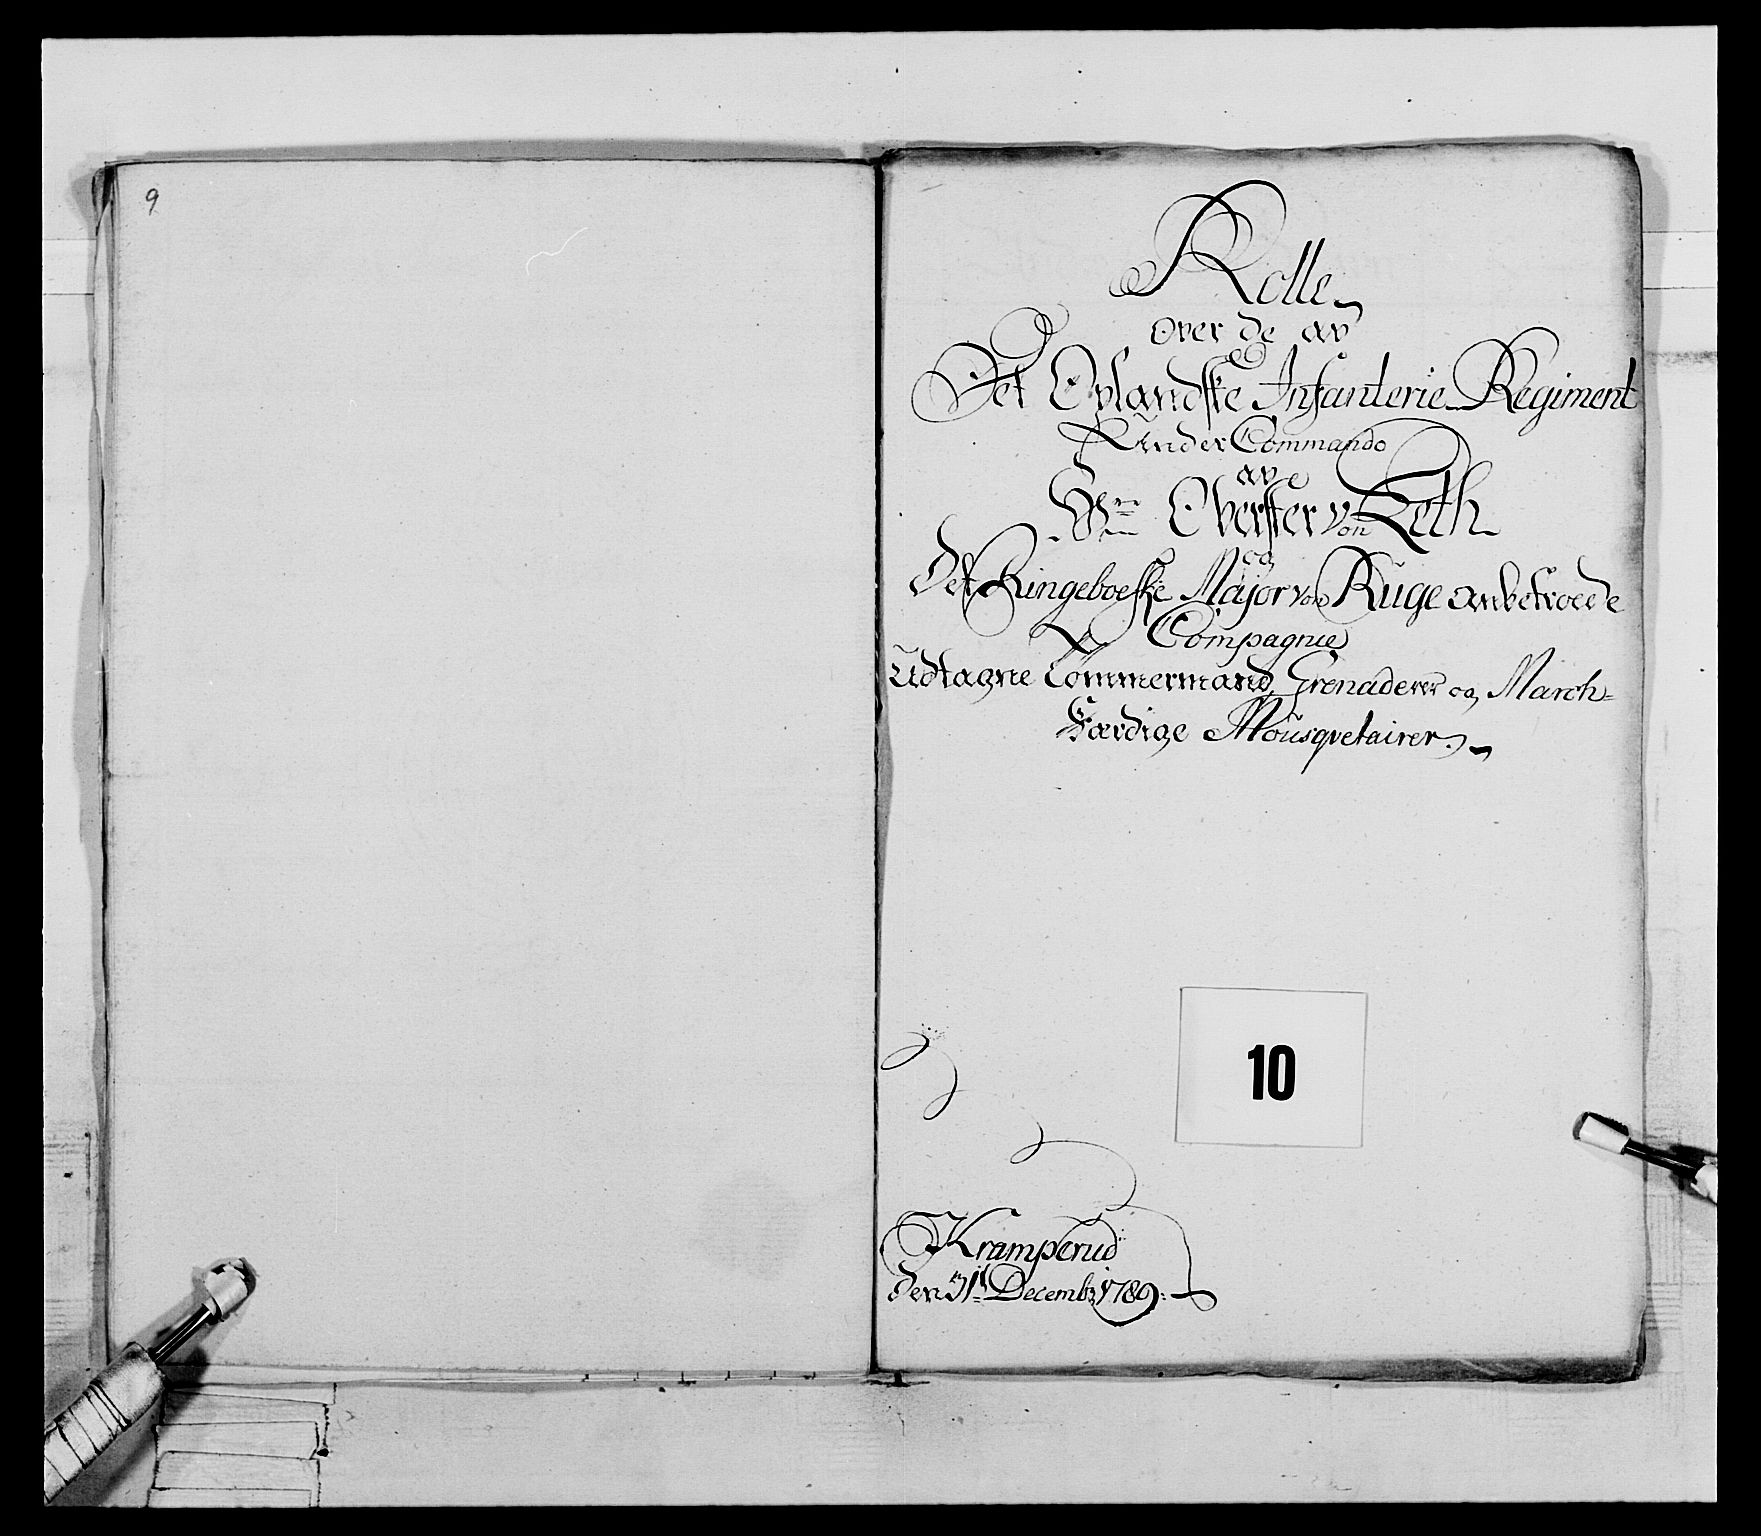 9
Rolle
over de av
Det Oplandske Infanterie Regiment
Under Commando
av
Hr Oberster von Leth
og
Det Ringeboeske Major von Rüge anbetroede
Compagnie
Udtagne Tömmermand, Grenaderer og March-
Færdige Mousqvetairer.
10
Kramperud
den 31t Decembr 1789.